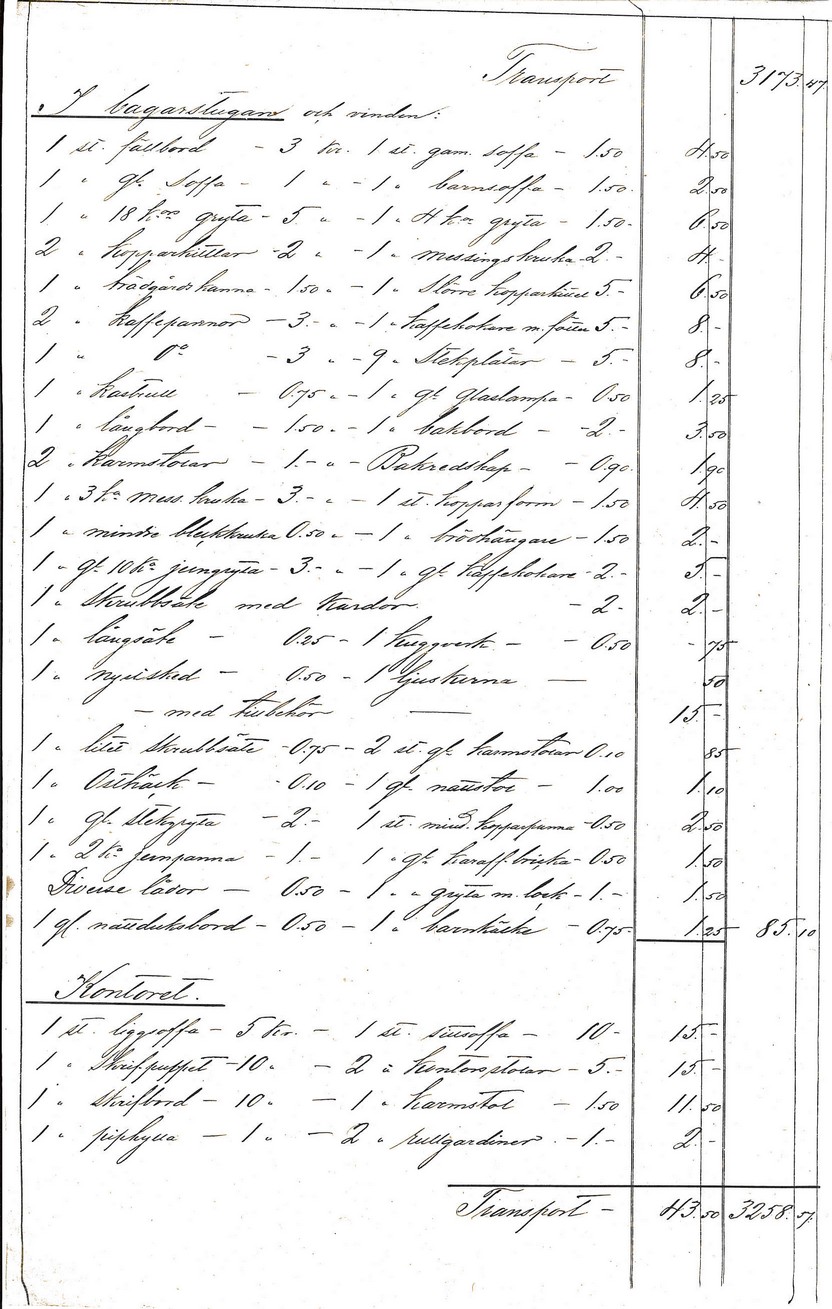 Transport 3173.47
I bagarstugan och vinden:
1 st. fällbord - 3 Kr. 1 st. gam. soffa - 1.50 4.50
1 " gl. Soffa - 1 " - 1 " barnsoffa - 1.50. 2.50
1 " 18 kors gryta - 5 " - 1 " 4 ka gryta - 1.50 - 6.50
2 " kopparkittlar - 2 " - 1 " messingskruka - 2. - 4 -
1 " trädgårdskanna - 1.50 " - 1 " Större kopparkittel 5. - 6.50
2 " kaffepannor - 3. - " - 1 " Kaffekokare m. fötter 5. - 8. -
1 " Do - 3 " - 9 " Stekplåtar - 5. - 8. -
1 " kastrull - 0.75 " - 1 " gl. glaslampa - 0.50 1.25
1 " långbord - - 1.50 " - 1 " bakbord - - 2. - 3.50
2 " Karmstolar - 1. - " - Bakredskap - - 0.90. 1.90
1 " 3 ka mess. kruka - 3. - " - 1 st. kopparform - 1.50 4.50
1 " mindre bleckkruka 0.50 " - 1 " brödhängare - 1.50 2. -
1 " gl. 10 Ka jerngryta - 3. - " - 1 " gl. kaffekokare - 2. - 5. -
1 " Skrubbsåle med Kardor. - 2 - 2. -
1 " långsåle - 0.25 - 1 Kuggverk - - 0.50 - 75
1 " nysilsked - 0.50 - 1 ljuskerna - 50
- med tillbehör - 15. -
1 " litet Skrubbsåle - 0.75 - 2 st. gl. karmstolar 0.10 85
1 " Osthäck - - 0.10 - 1 gl. nattstol - 1.00 1.10
1 " gl. stekgryta - 2. - 1 st. mind. kopparpanna - 0.50 2.50
1 " 2 Ka jernpanna - 1. - 1 " gl. karaff. bricka - 0.50 1.50
Diverse lådor - 0.50 - 1 " " gryta m. lock - 1. - 1.50
1 gl. nattduksbord - 0.50 - 1 " barnkälke - 0.75 - 1.25 85.10
Kontoret.
1 st. liggsoffa - 5 Kr. - 1 st. sittsoffa - 10 - 15. -
1 " Skrifpulpet - 10 " - 2 " Kontorsstolar - 5. - 15. -
1 " skrifbord - 10 " - 1 " Karmstol - 1.50 11.50
1 " piphylla - 1 " - 2 " rullgardiner. - 1. - 2. -
Transport - 43.50 3258.57.